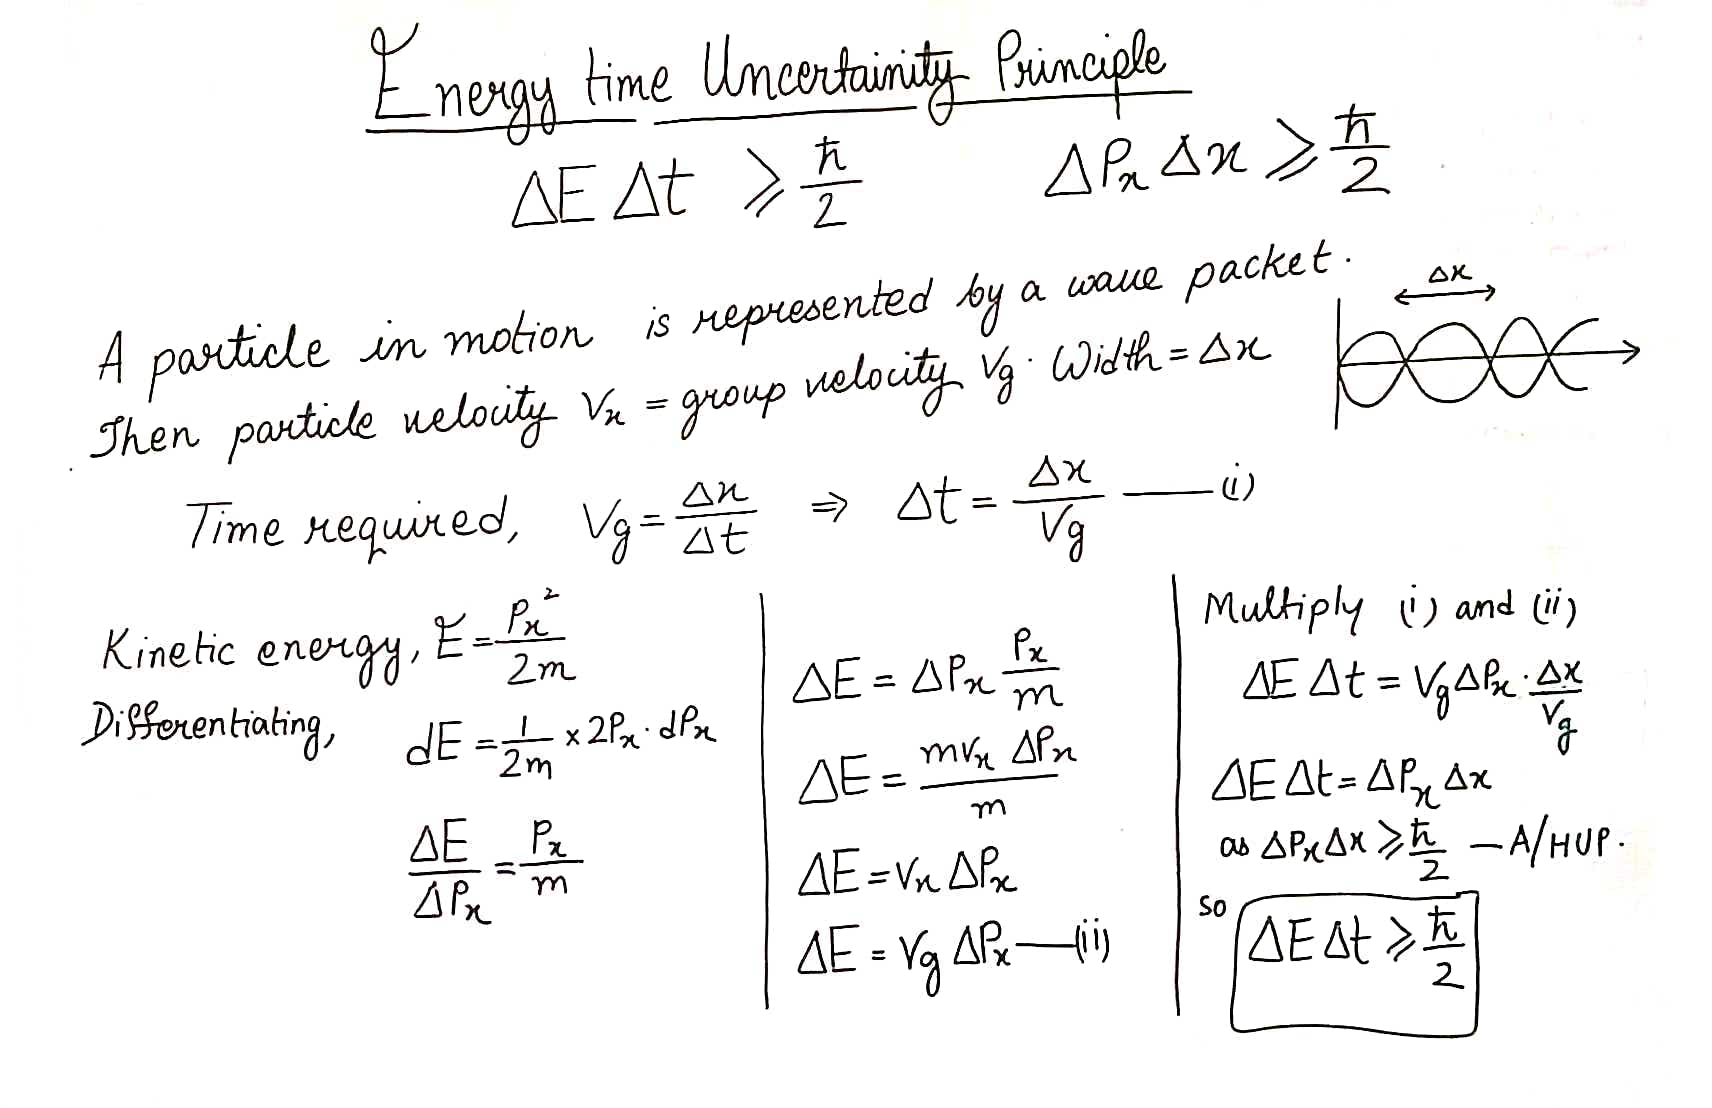 Energy time Uncertainity Principle
ΔE Δt ⩾ ħ/2    ΔPx Δx ⩾ ħ/2
A particle in motion is represented by a wave packet.
Δx
Then particle velocity Vx = group velocity Vg. Width = Δx
Time required, Vg = Δx/Δt ⇒ Δt = Δx/Vg —— (i)
Kinetic energy, E = Px²/2m
Differentiating, dE = 1/2m × 2Px · dPx
ΔE/ΔPx = Px/m
ΔE = ΔPx Px/m
ΔE = mVx ΔPx/m
ΔE = Vx ΔPx
ΔE = Vg ΔPx —— (ii)
Multiply (i) and (ii)
ΔE Δt = Vg ΔPx · Δx/Vg
ΔE Δt = ΔPx Δx
as ΔPx Δx ⩾ ħ/2 — A/HUP.
so ΔE Δt ⩾ ħ/2